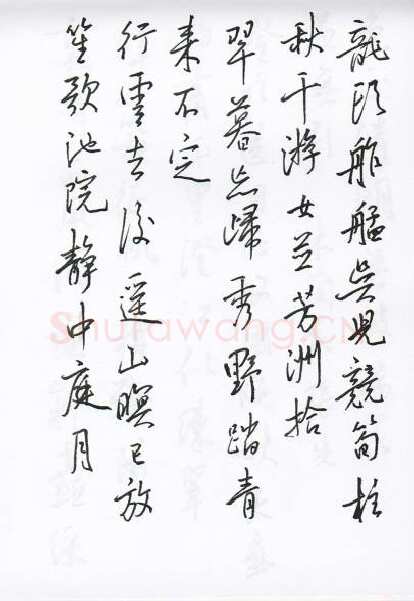 龍頭舴艋吳兒競筍柱
秋千游女並芳洲拾
翠暮忘歸秀野踏青
來不定
行雲去後遥山暝已放
笙歌池院靜中庭月
Shufawang.CN